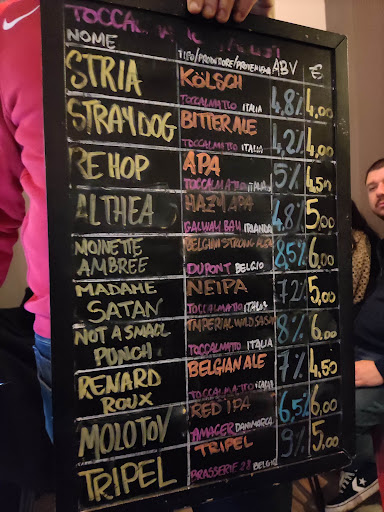 TOCCAL
NOME TIPO/PRODUTTORE/PROVENIENZA ABV €
STRIA KÖLSCH 4,8% 4,00
TOCCALMATTO ITALIA
STRAY DOG BITTER ALE 4,2% 4,00
TOCCALMATTO ITALIA
RE HOP APA 5% 4,50
TOCCALMATTO ITALIA
ALTHEA HAZY APA 4,8% 5,00
GALWAY BAY IRLANDA
MOINETTE BELGIAN STRONG ALE 8,5% 6,00
AMBREE DUPONT BELGIO
MADAME NEIPA 7,2% 5,00
SATAN TOCCALMATTO ITALIA
NOT A SMALL IMPERIAL WILD SASN 8% 6,00
PUNCH TOCCALMATTO ITALIA
RENARD BELGIAN ALE 7% 4,50
ROUX TOCCALMATTO ITALIA
MOLOTOV RED IPA 6,5% 6,00
AMAGER DANIMARCA
TRIPEL TRIPEL 9% 5,00
BRASSERIE 28 BELGIO